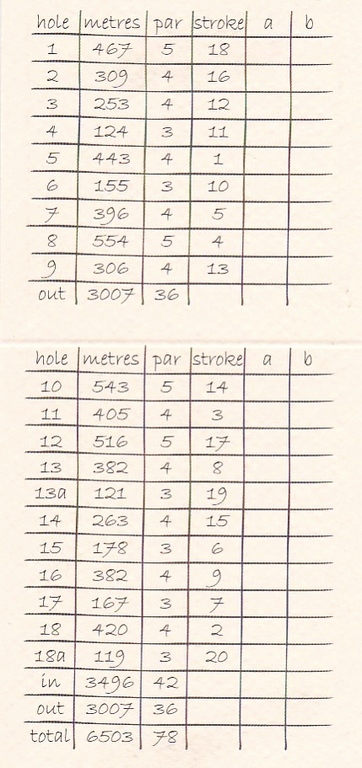 hole metres par stroke a b
1 467 5 18
2 309 4 16
3 253 4 12
4 124 3 11
5 443 4 1
6 155 3 10
7 396 4 5
8 554 5 4
9 306 4 13
out 3007 36
hole metres par stroke a b
10 543 5 14
11 405 4 3
12 516 5 17
13 382 4 8
13a 121 3 19
14 263 4 15
15 178 3 6
16 382 4 9
17 167 3 7
18 420 4 2
18a 119 3 20
in 3496 42
out 3007 36
total 6503 78